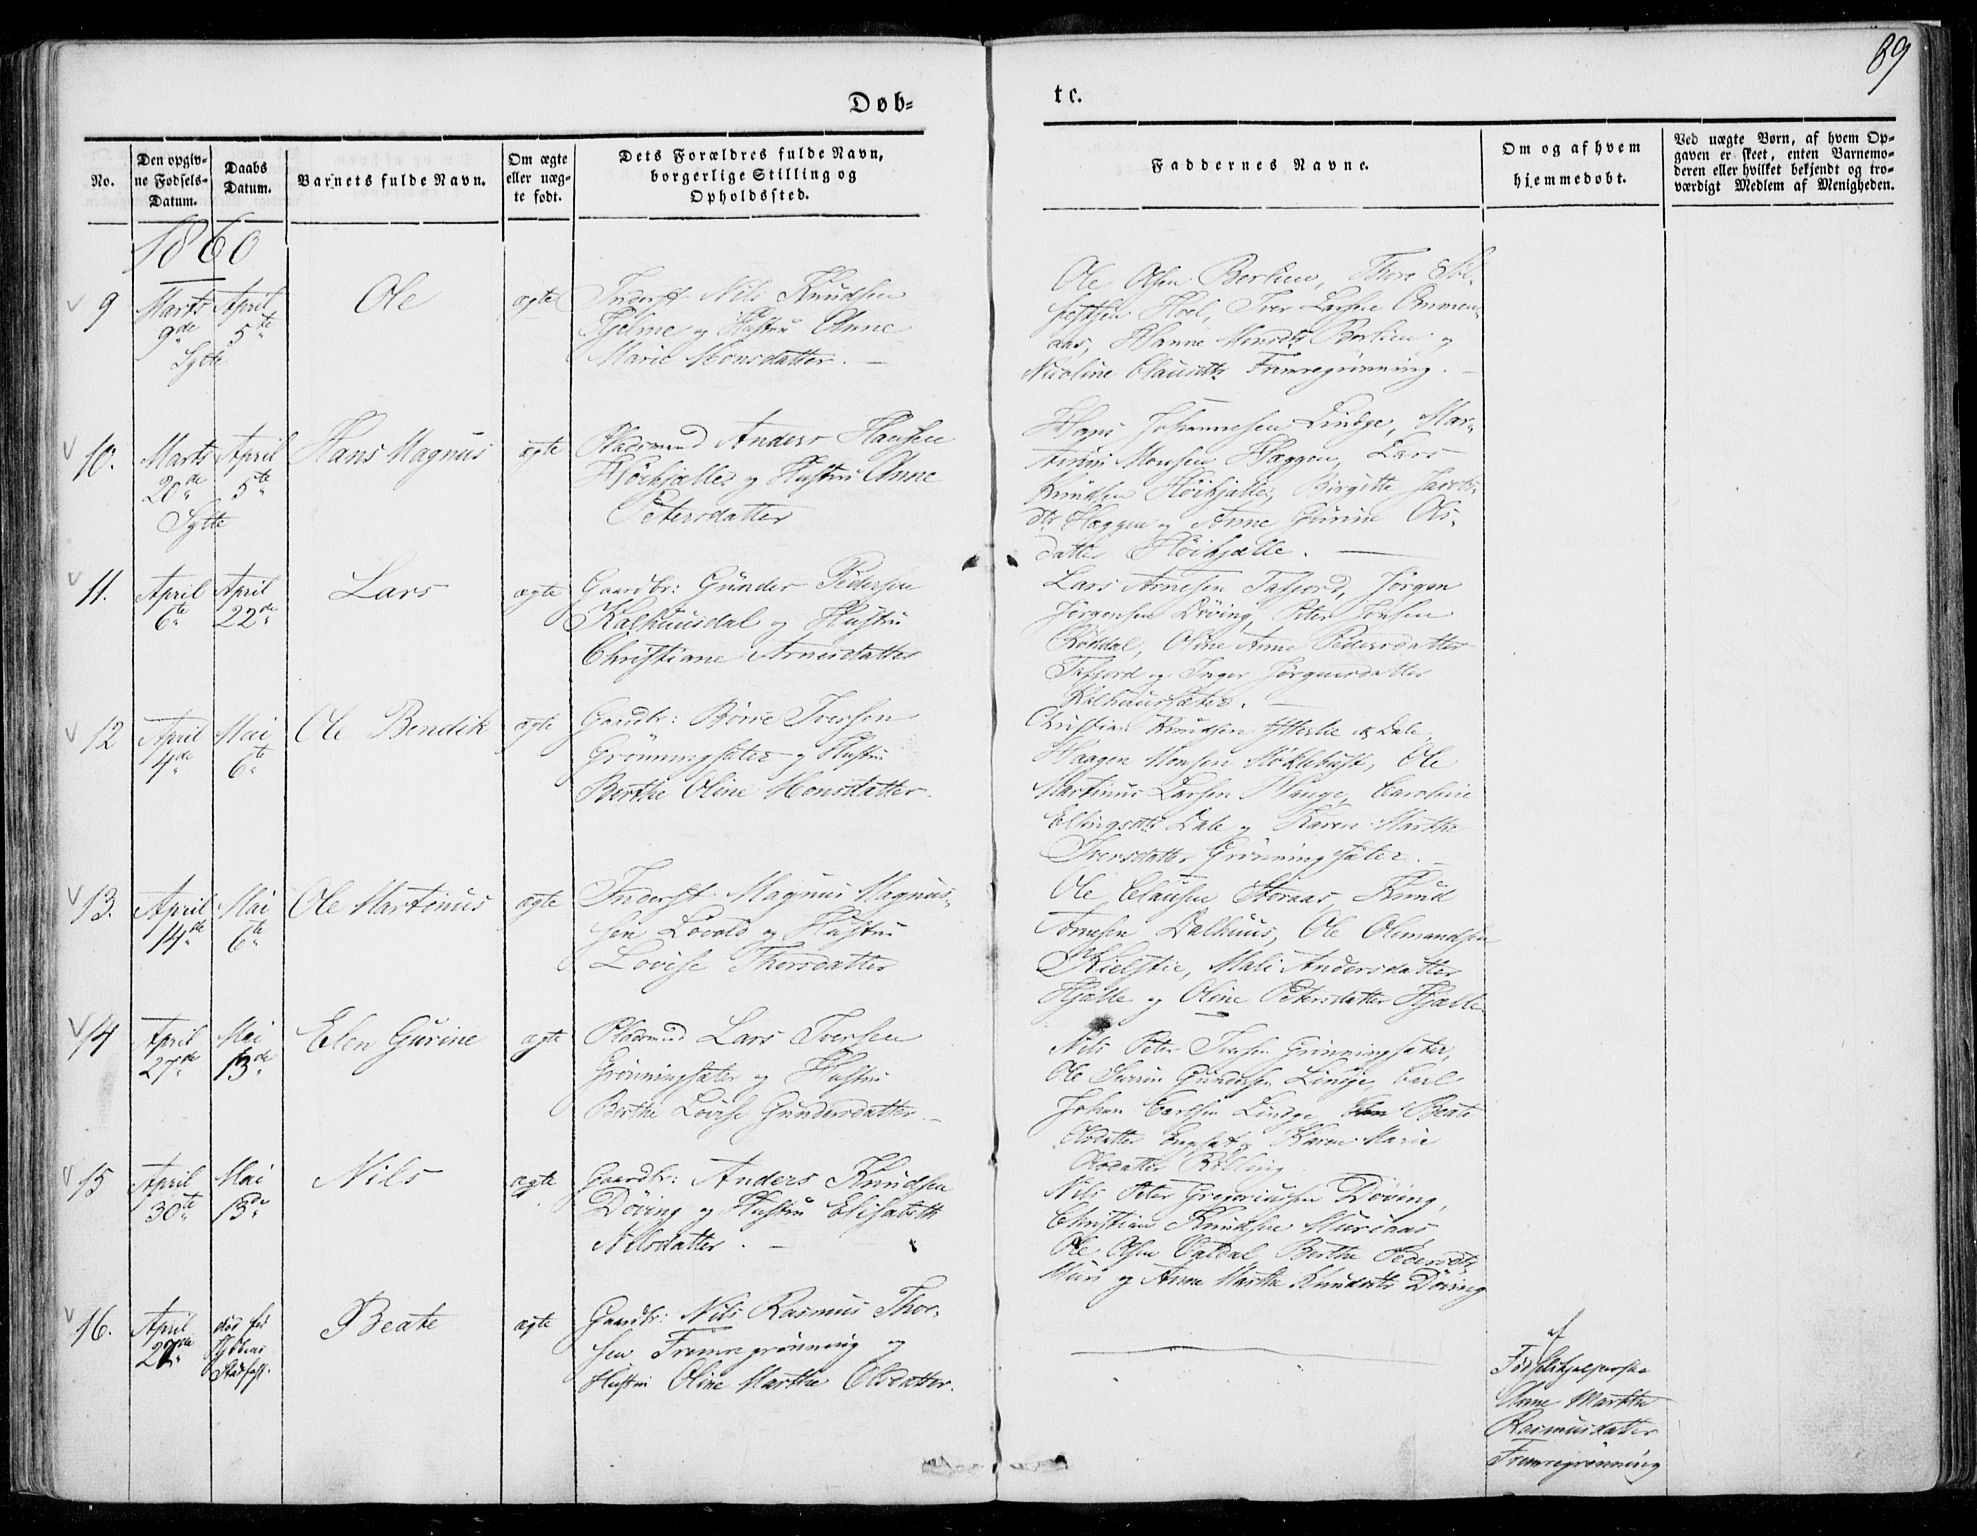 89
Døb=
te.
No.
Den opgiv-
ne Fødsels-
Datum.
Daabs
Datum.
Barnets fulde Navn.
Om ægte
eller uæg-
te født.
Dets Forældres fulde Navn,
borgerlige Stilling og
Opholdssted.
Faddernes Navne.
Om og af hvem
hjemmedøbt.
Ved uægte Børn, af hvem Op-
gaven er skeet, enten Barnemo-
deren eller hvilket bekjendt og tro-
værdigt Medlem af Menigheden.
1860
9
Marts
9de
Sylte
April
5te
Ole
ægte
Inderst Nils Knudsen
Hjelme og Hustru Anne
Marie Monsdatter. —
Ole Olsen Berlien, Thore
Hoel, Iver Larsen
aas, Hanne Monsdtr Berlien og
Nicoline Clausdtr Fremregrønning. —
10.
Marts
20de
Sylte
April
5te
Hans Magnus
ægte
Pladsmand Anders Hansen
Høikjelle og Hustru Anne
Petersdatter
Hans Johannesen Lindge, Mar-
Monsen Hæggen, Lars
Knudsen Høikjelle, Birgitte Jacobs-
dtr Hæggen og Anne Gurine Ols-
datter Høikjelle. —
11.
April
6te
April
22de
Lars
ægte
Gaardbr: Gunder Pedersen
Kalhuusdal og Hustru
Christiane Arnesdatter
Lars Arnesen Tafjord, Jørgen
Jørgensen Døving, Peter Jonsen
Røddal, Oline Anne Pedersdatter
Tafjord og Inger Jørgensdatter
Kalhuussæter. —
12
April
4de
Mai
6te
Ole Bendik
ægte
Gaardbr: Børre Iversen
Grønningsæter og Hustru
Berthe Oline Monsdatter.
Christian Knudsen Ytterlie Dale,
Haagen Monsen Myklebust, Ole
Martinus Larsen Hauge, Caroline
Ellingsdtr Dale og Karen Marthe
Iversdatter Grønningsæter. —
13.
April
14de
Mai
6te
Ole Martinus
ægte
Inderst Magnus Magnus-
sen Lovold og Hustru
Lovise Thorsdatter
Ole Clausen Storaas, Knud
Arnesen Dalhuus, Ole Olemandsen
Kielstie, Mali Andersdatter
Hjelle og Oline Petersdatter Hjelle
14
April
27de
Mai
13de
Elen Gurine
ægte
Pladsmand Lars Iversen
Grønningsæter og Hustru
Berthe Lovise Gundersdatter. —
Nils Peter Iversen Grønningsæter,
Ole Gundersen Lindge, Carl
Johan Carlsen Lindge, Beate
Olsdatter Engset og Karen Marie
Olsdatter Rølling
15
April
30te
Mai
13de
Nils
ægte
Gaardbr: Anders Knudsen
Døving og Hustru Elisabeth
Nilsdatter. —
Nils Peter Gregoriussen Døving,
Christian Knudsen Murioas,
Ole Olsen Valdal, Berthe Pedersdtr
Muri og Anne Marthe Knudsdtr Døving
16.
April
27de
død før
Daabens
Stadfæst.
Beate
ægte
Gaardbr: Nils Rasmus Thor-
sen Fremregrønning og
Hustru Oline Marthe Olsdatter.
af
Fødselshjelperske
Anne Marthe
Rasmusdatter
Fremregrønning